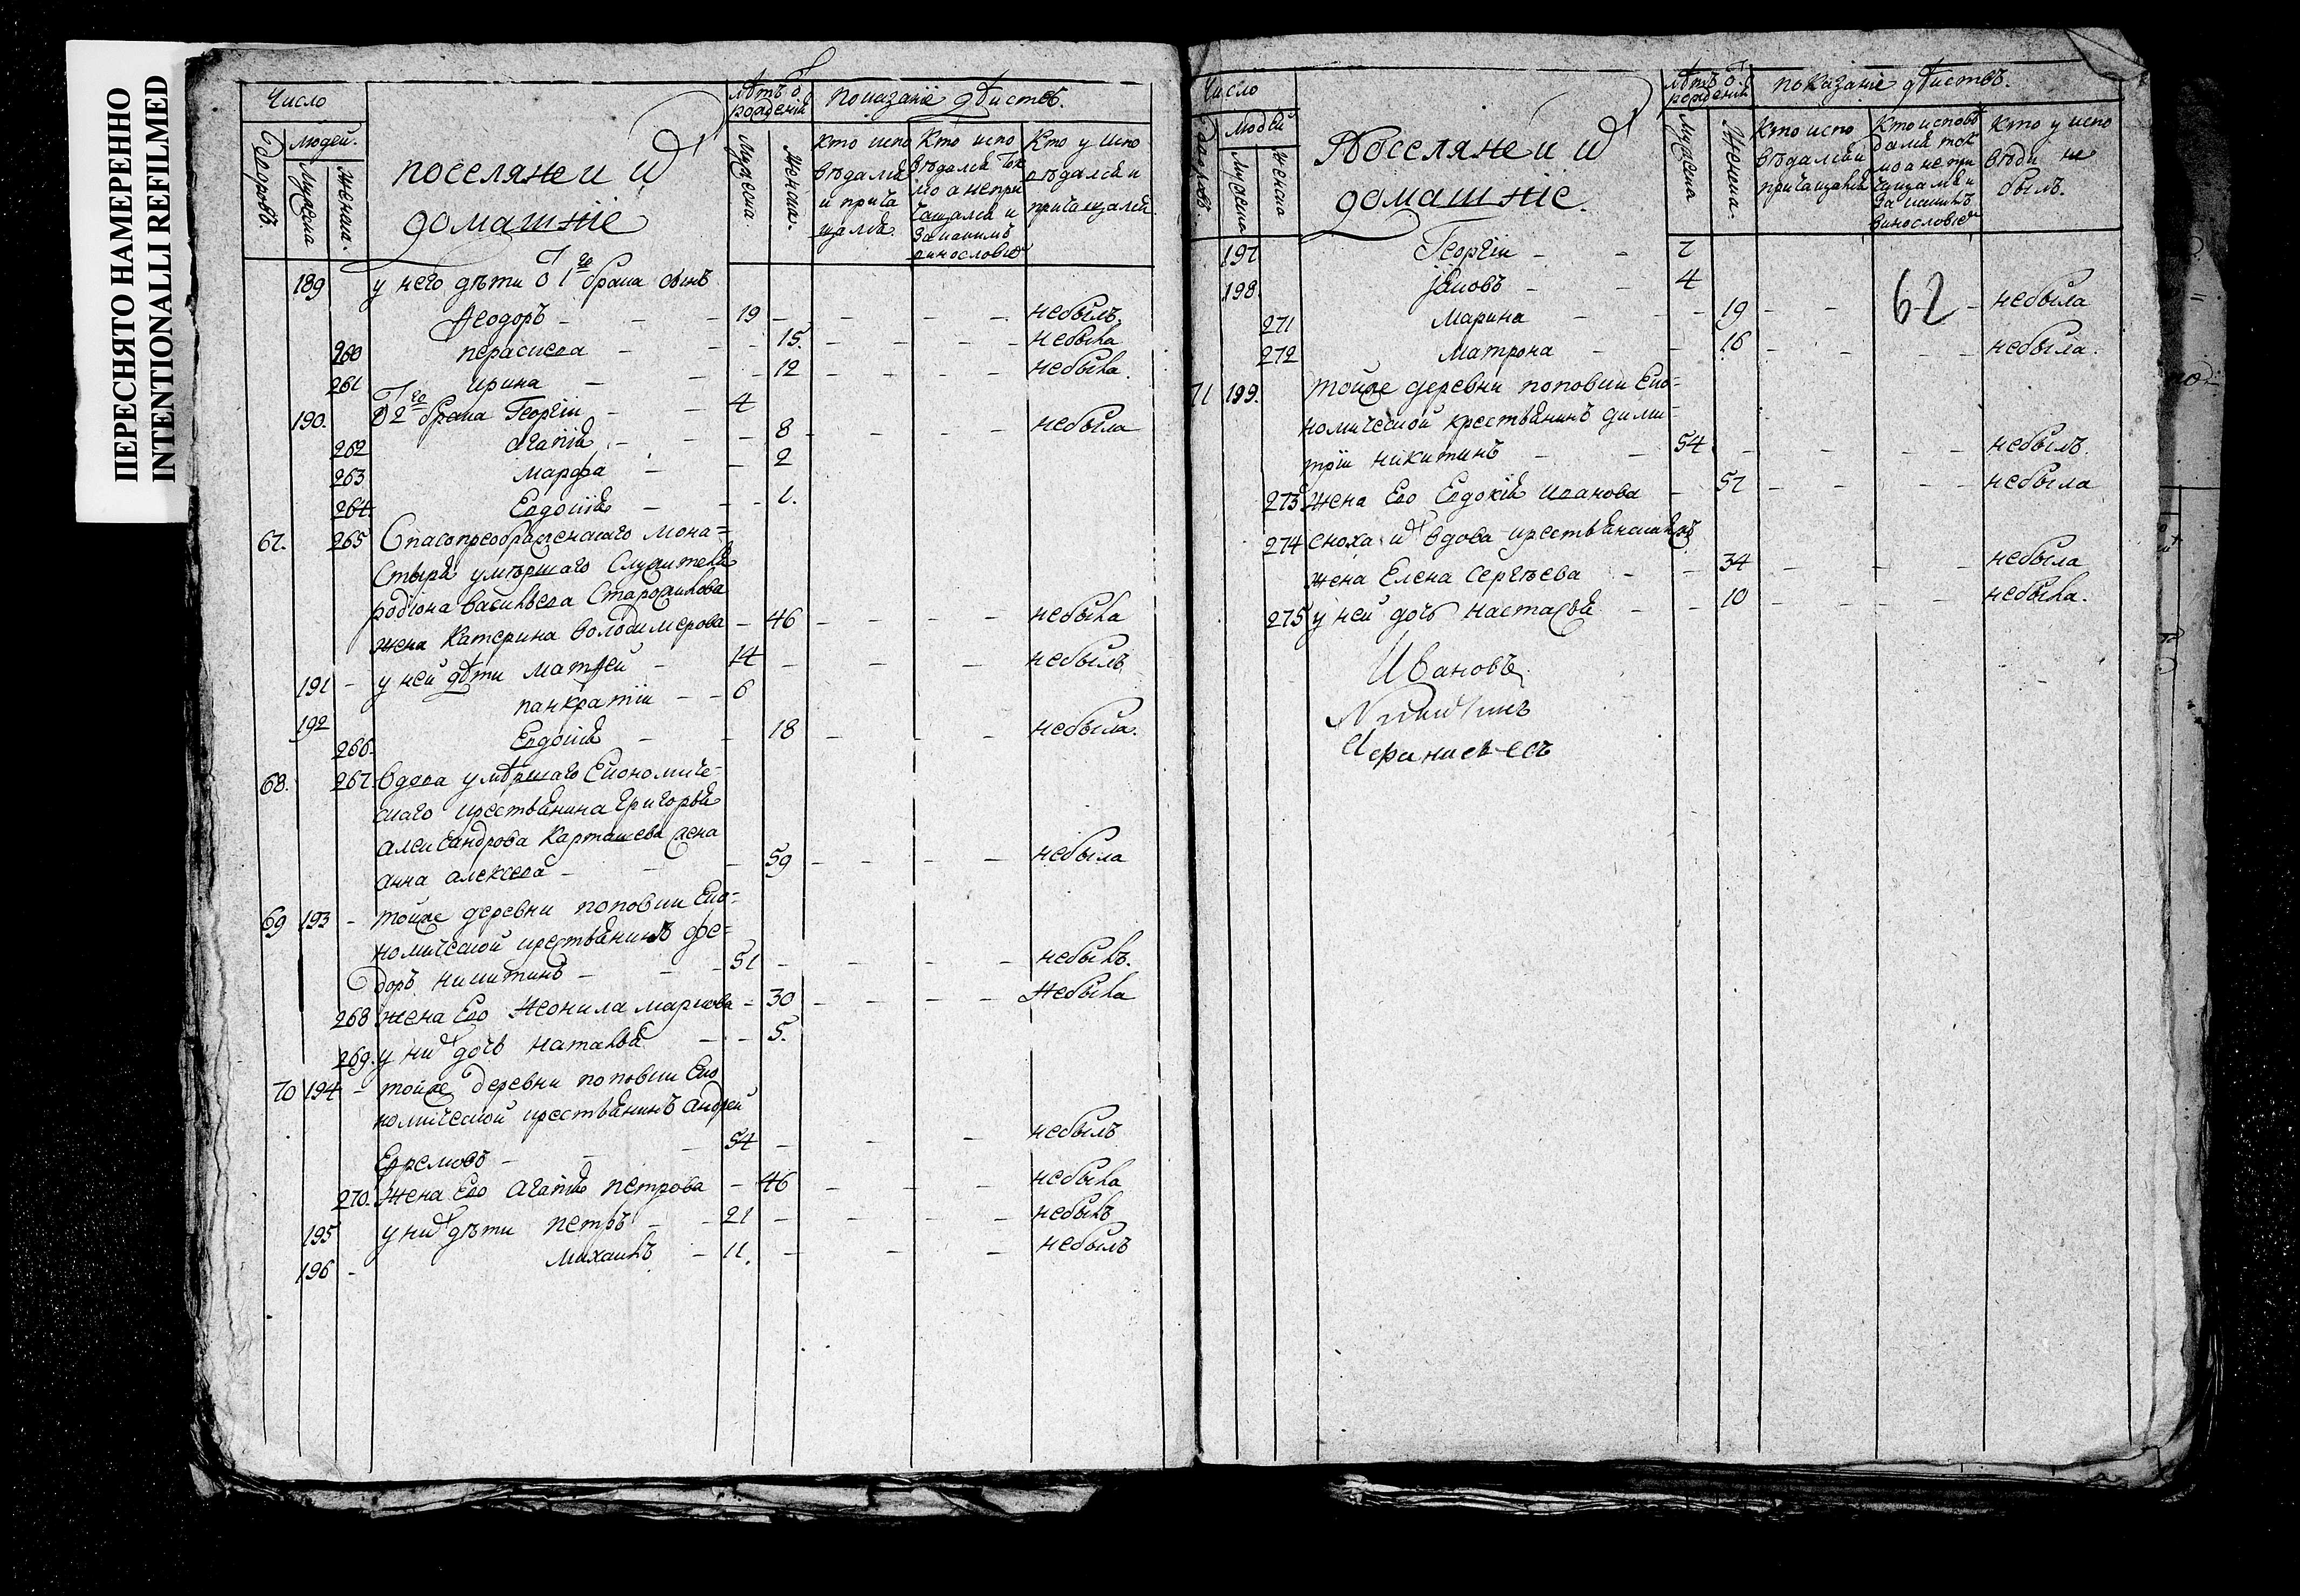 ПЕРЕСНЯТО НАМЕРЕННО
INTENTIONALLI REFILMED
Число
дворовъ.
людей.
Мужеска
Женска.
поселяне и ихъ
домашніе
лѣтъ отъ
рожденія
Мужеска.
Женска.
показаніе дѣйствъ.
кто испо
вѣдался
и прича
щался.
Кто испо
вѣдался ток
мо а непри
чащался и
за какимъ
винословіемъ
Кто у испо
вѣдался и
причащался.
189 у него дѣти отъ 1го брака сынъ
Ѳеодоръ - 19 небылъ.
260 параскева - 15. небыла
261 ирина - 12 небыла.
190. отъ 2го брака Георгіи - 4
262 агапія - 8 небыла
263 марфа - 2
264. Евдокія - 1.
67. 265 Спасопреображенскаго мона=
стыря умѣршаго служителя
родіона васильева Старожилова
жена Катерина володимерова - 46 небыла
191 - у ней дѣти матѳей - 14 небылъ
192 панкратіи - 6
266. Евдокія - 18 небыла.
68. 267. вдова умѣршаго Економиче=
скаго крестьянина григорья
александрова Карташева жена
анна алексеева - 59 небыла
69 193 - тойже деревни поповки Еко=
номической крестьянинъ фе=
доръ никитинъ - 51 небылъ.
268 жена Его Неонила маркова - 30 небыла
269. у нихъ дочь наталья - 5.
70 194 - тойже деревни поповки Еко
номической крестьянинъ андрей
Ефремовъ - 54 небылъ
270. жена Его агапія петрова - 46 небыла
195 у нихъ дѣти петръ - 21 небылъ
196 - михаилъ - 11. небылъ
Число
дворовъ.
людей
Мужеска
женска
Поселяне и ихъ
домашніе.
лѣтъ отъ
рожденія
Мужеска
Женска.
показаніе дѣйствъ.
кто испо
вѣдался и
причащался
Кто исповѣ
дался ток
мо а не при
чащался и
за какимъ
винословіемъ
Кто у испо
вѣди не
былъ.
62
197 Георгіи - 7
198. іаковъ - 4
271 марина - 19 небыла
272 матрона - 16 небыла.
71 199. тойже деревни поповки Еко=
номической крестьянинъ дими=
тріи никитинъ - 54 небылъ.
273 жена Его Евдокія иванова - 57 небыла
274 сноха ихъ вдова крестьянская
жена Елена Сергѣева - 34 небыла
275 у ней дочь настасья - 10 небыла.
Ивановъ
Никитинъ